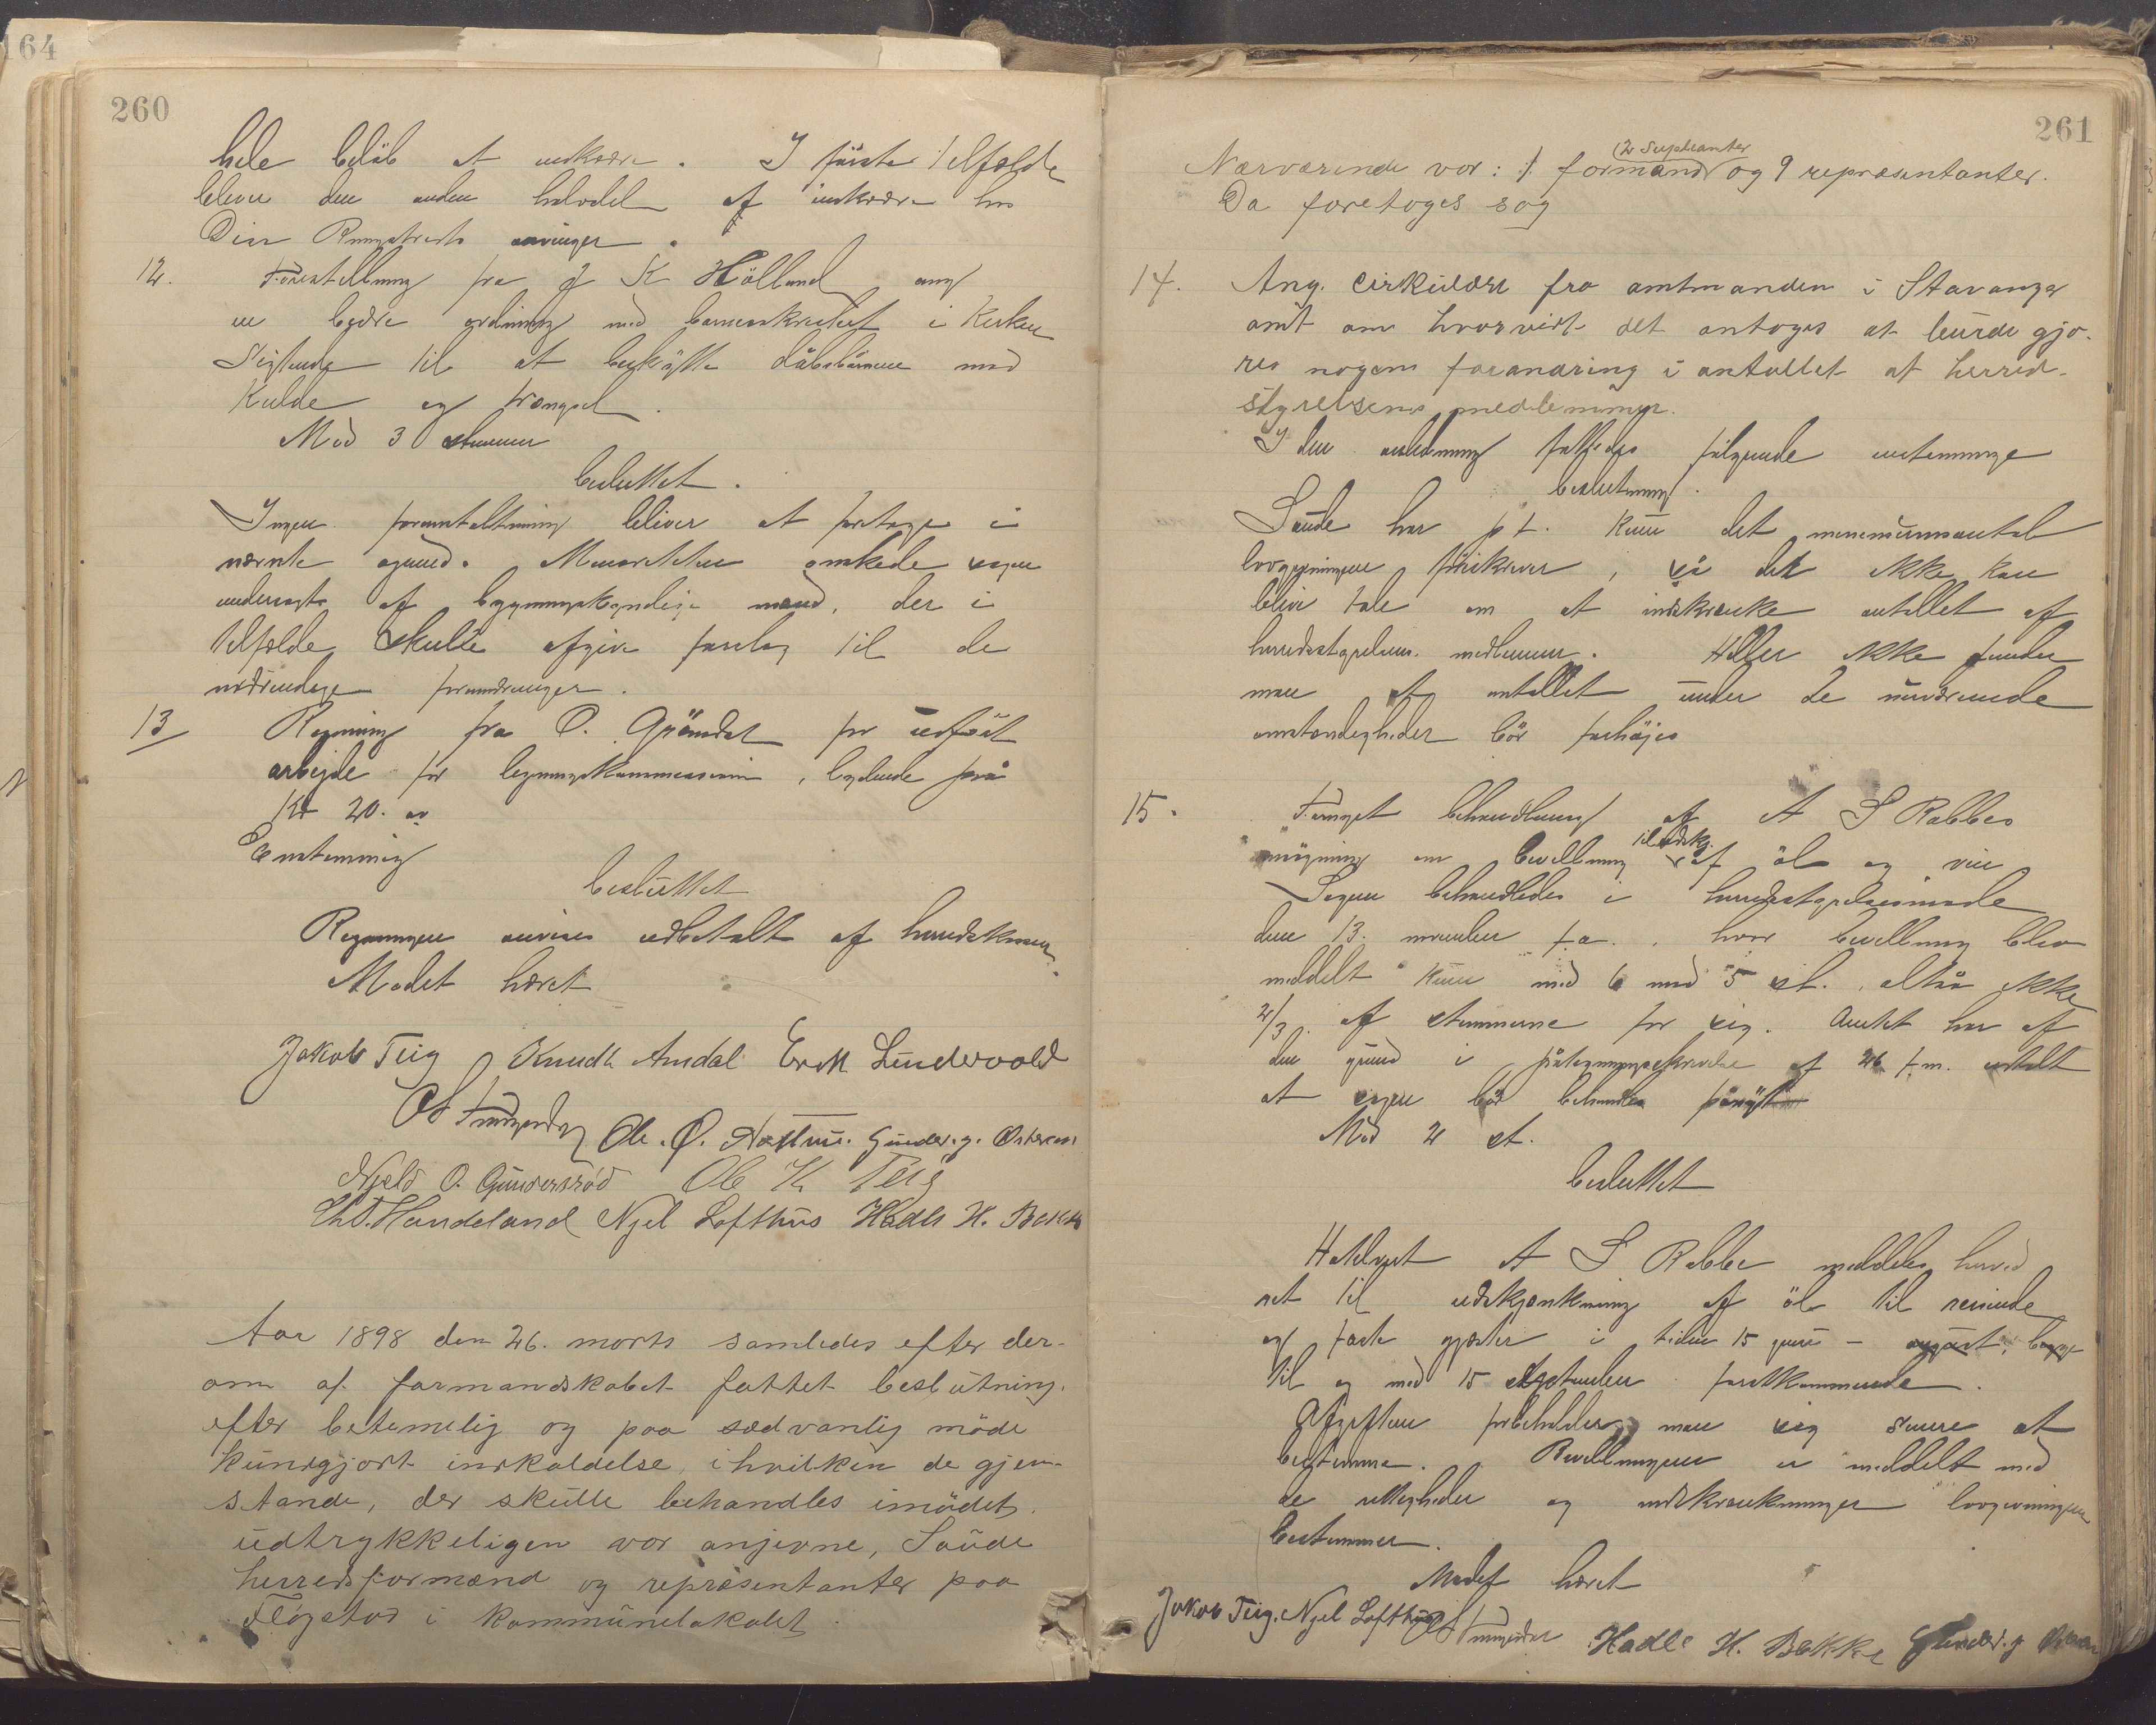 164
260
hele beløb at indkræve. I første tilfælde
bliver den anden halvdel af inskræve hos
Din arvinger.
12. Forestilling fra J K Hölland ang
en bedre ordning med i Kirken
Sigtende til at beskytte dåbsbørnene mod
Kulde og trængsel.
Mod 3 stemmer
besluttet.
Ingen foranstaltning bliver at foretage i
nævnte øiemed. ønskede sagen
undersøgt af bygningskyndige mænd, der i
tilfælde skulle afgive forslag til de
nødvendige forandringer.
13 Regning fra O. Gröndal for udført
arbeide for ligningskommissionen, lydende på
Kr 20.00
Enstemmig
besluttet
Regningen anvises udbetalt af herredskassen
Mødet hævet
Jakob Teig Knudt Amdal Erik Lindevold
Ole. O. Gunder. g. Østerhus
Njeld O. Gundersrød Ole K Teig
Handeland Njel Lofthus Hadle H. Bakke
Aar 1898 den 26. marts samledes efter der-
om af formandskabet fattet beslutning.
efter betemelig og paa sædvanlig måde
kundgjort indkaldelse, ihvilken de gjen-
stande, der skulle behandles imödet.
udtrykkeligen var angivne, Saude
herredsformænd og repræsentanter paa
Fløgstad i kommunelokalet.
261
(2 Supleanter
Nærværende var: 7. formænd og 9 repræsentanter.
Da foretoges sag
14. Ang. cirkulære fra amtmanden i Stavanger
amt om hvorvidt det antages at burde gjø-
res nogen forandring i antallet af herred-
styrelsens medlemmer.
I den anledning fattedes følgende enstemmige
beslutning.
Saude har p t. kun det minimumsantal
lovgivningen foreskriver, så det ikke kan
blive tale om at indskrænke antallet af
herredsstyrelsens medlemmer. Heller ikke finder
man at antallet under de nuværende
omstændigheder bör forhöjes
15. Fornyet behandling af A S Rabbes
til udskj.
ansögning om bevilling af öl og vin
Sagen behandledes i herredsstyrelsesmøde
den 13. november f.a., hvor bevilling blev
meddelt kun med 6 mod 5 st., altså ikke
2/3 af stemmerne for sig. Amtet har af
den grund i påtegningsskrivelse af 26 f.m. udtalt
at sagen bör behandles pånyt
Mod 2 st.
besluttet
Hotelvært A S Rabbe meddeles herved
ret til udskjænkning af öl til reisende
og faste gjæster i tiden 15 juni - august, begge
til og med 15 september førstkommende.
Afgiften forbeholder man sig senere at
bestemme. Bevillingen er meddelt med
de rettigheder og indskrænkninger lovgivningen
bestemmer.
Mødet hævet
Jakob Teig. Njel Lofthus Hadle H. Bakke Gunder. g